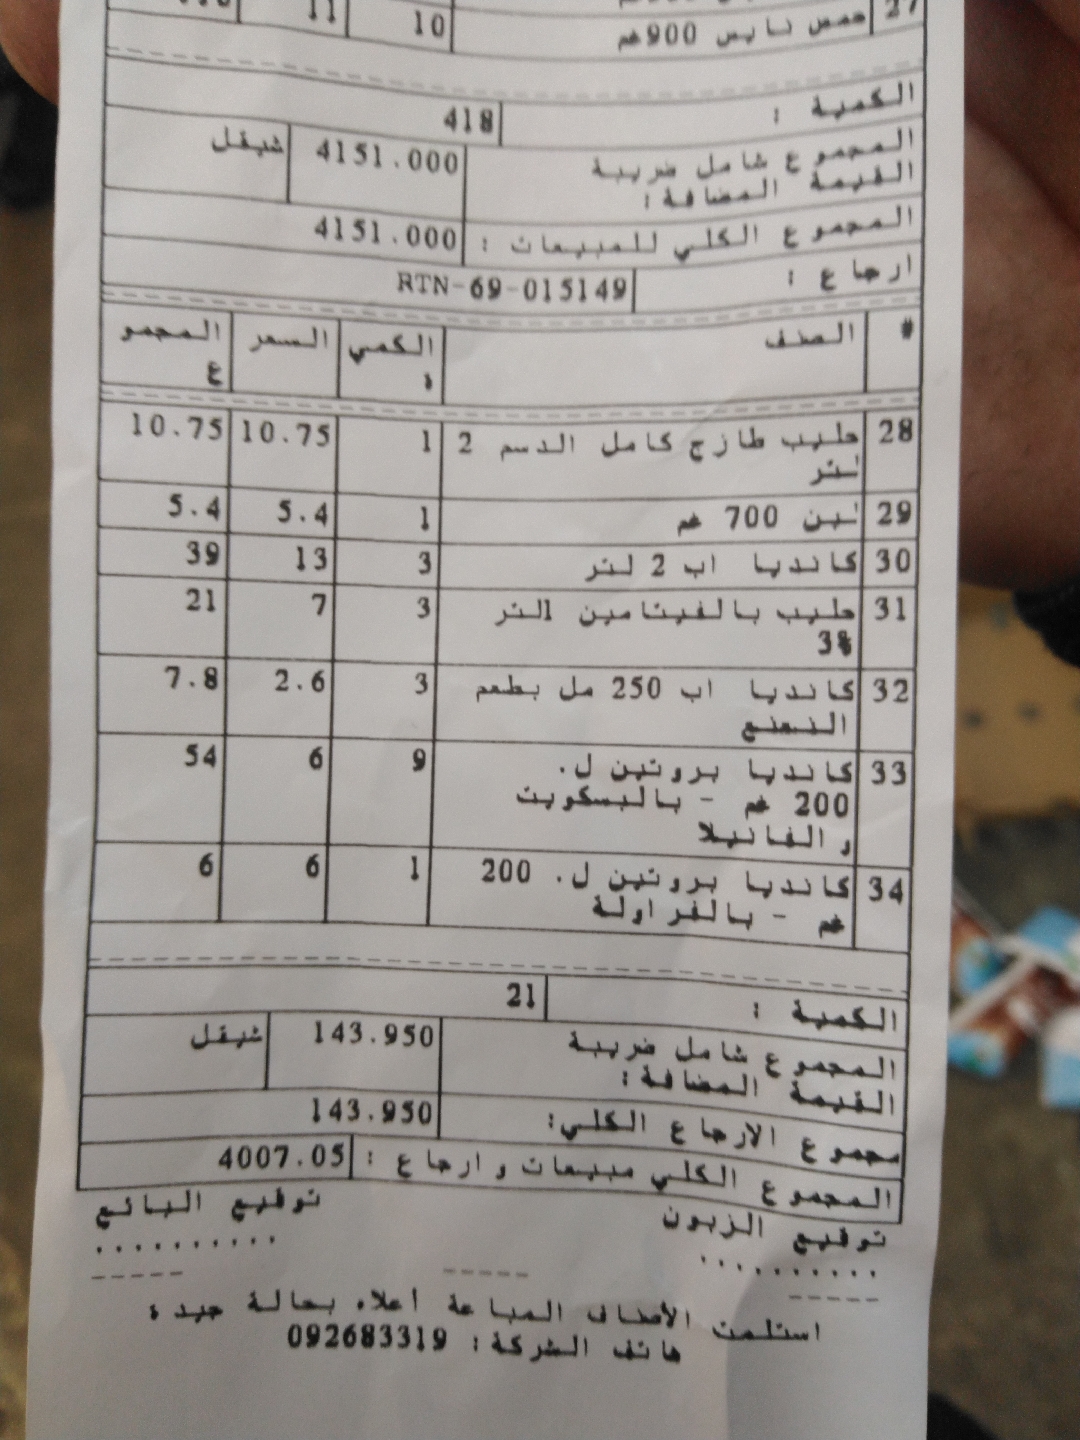 27 حمص نايس 900غم 10 11
الكمية : 418
المجموع شامل ضريبة 4151.000 شيقل
القيمة المضافة:
المجموع الكلي للمبيعات : 4151.000
ارجاع : RTN-69-015149
# الصنف الكمي السعر المجمو
ة ع
28 حليب طازج كامل الدسم 2 1 10.75 10.75
لتر
29 لبن 700 غم 1 5.4 5.4
30 كانديا اب 2 لتر 3 13 39
31 حليب بالفيتامين 1لتر 3 7 21
3%
32 كانديا اب 250 مل بطعم 3 2.6 7.8
النعنع
33 كانديا بروتين ل. 9 6 54
200 غم - بالبسكويت
و الفانيلا
34 كانديا بروتين ل. 200 1 6 6
غم - بالفراولة
الكمية : 21
المجموع شامل ضريبة 143.950 شيقل
القيمة المضافة:
مجموع الارجاع الكلي: 143.950
المجموع الكلي مبيعات و ارجاع : 4007.05
توقيع الزبون توقيع البائع
.......... ..........
----- ----- -----
استلمت الأصناف المباعة أعلاه بحالة جيدة
هاتف الشركة: 092683319